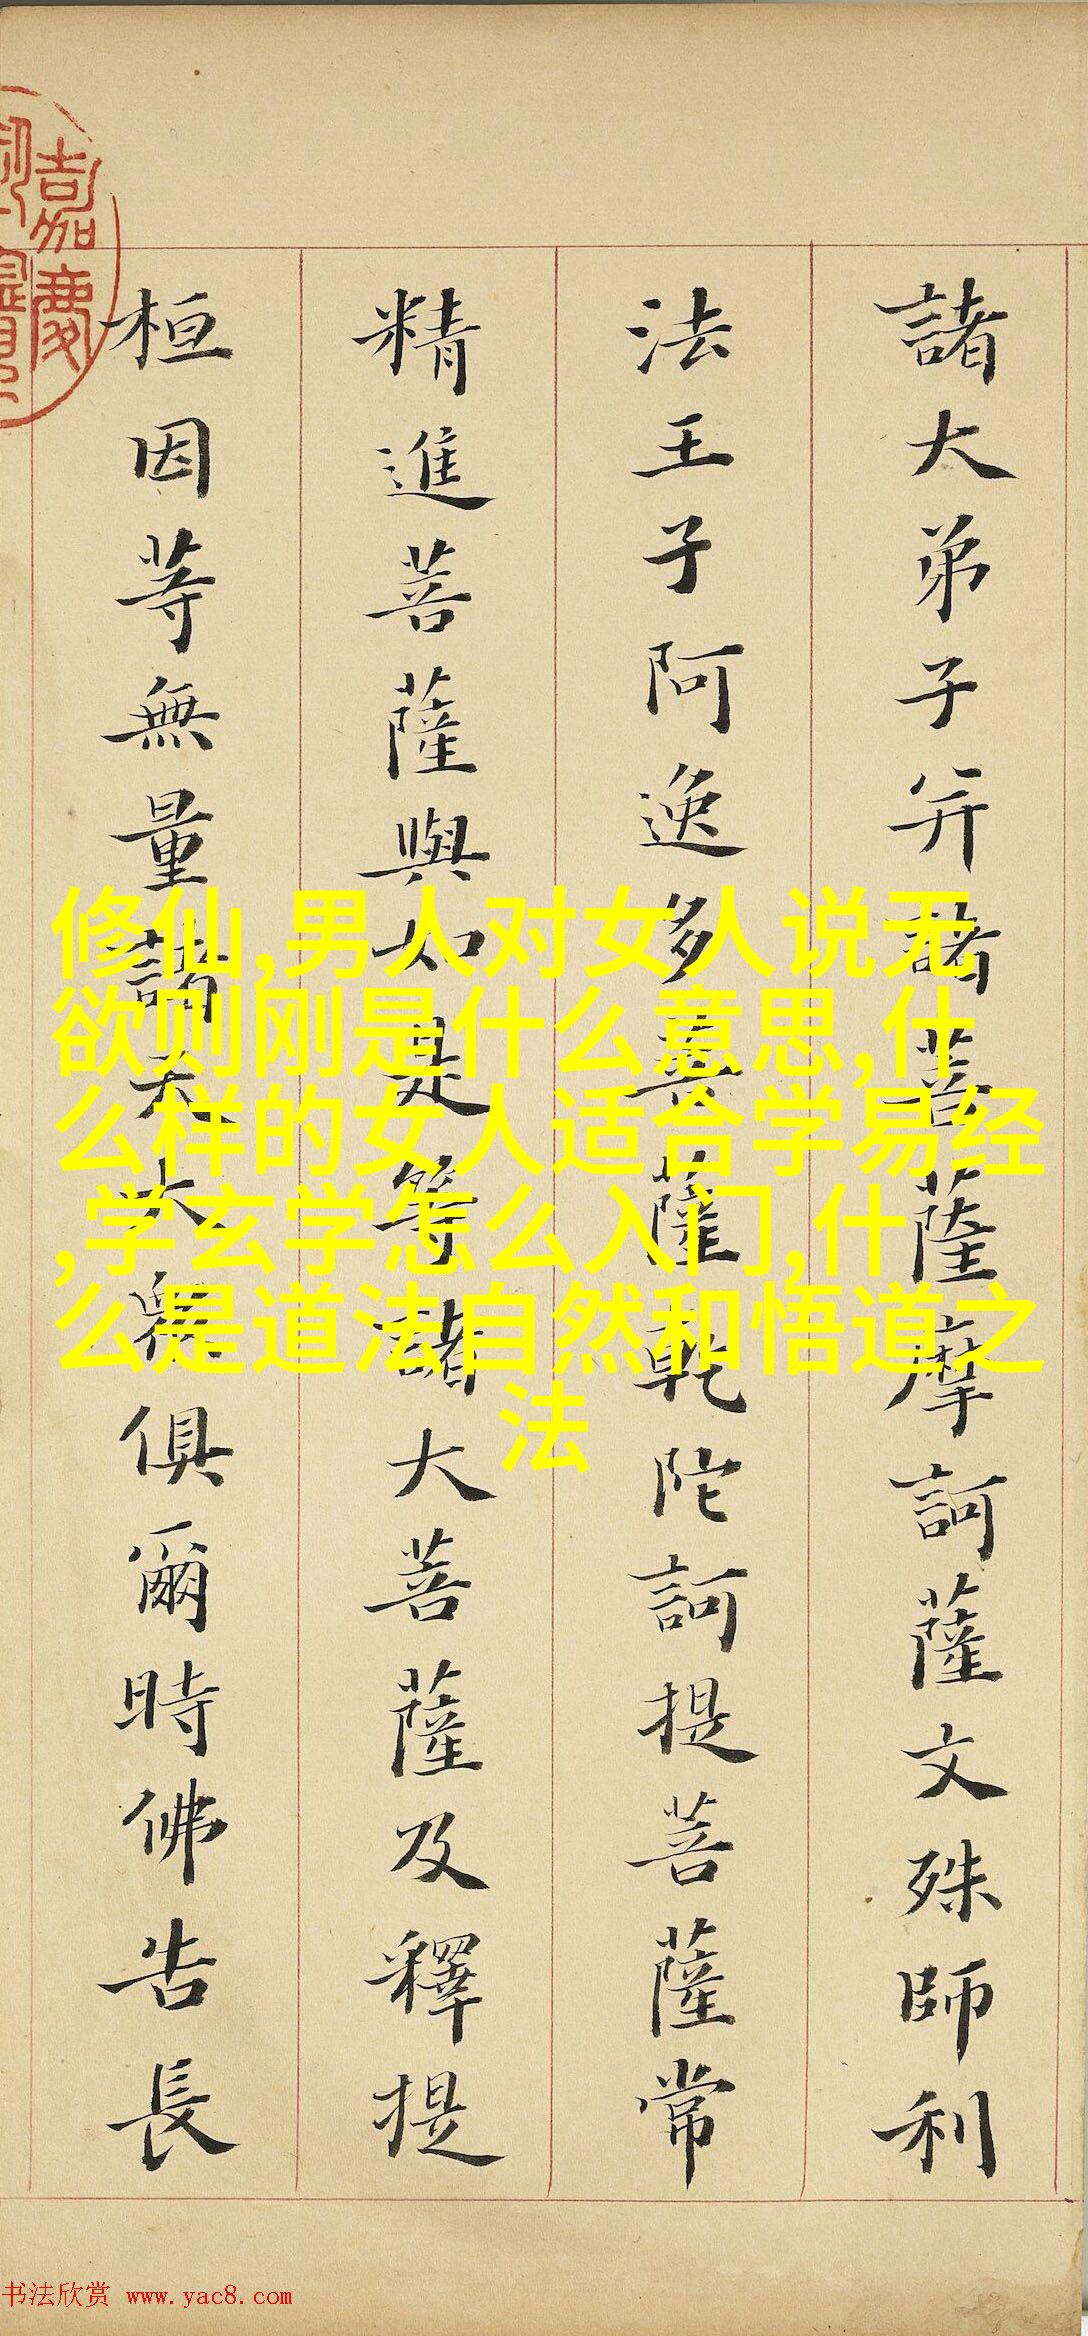 諸大弟子并諸菩薩摩訶薩文殊師利
法王子阿逸多菩薩乾陀訶提菩薩常
精進菩薩與如是等諸大菩薩及釋提
桓因等無量諸天大衆俱爾時佛告長
嘉慶
修仙,男人对女人说无
欲则刚是什么意思,什
么样的女人适合学易经
,学玄学怎么入门,什
么是道法自然和悟道之
法
书法欣赏 www.yac8.com